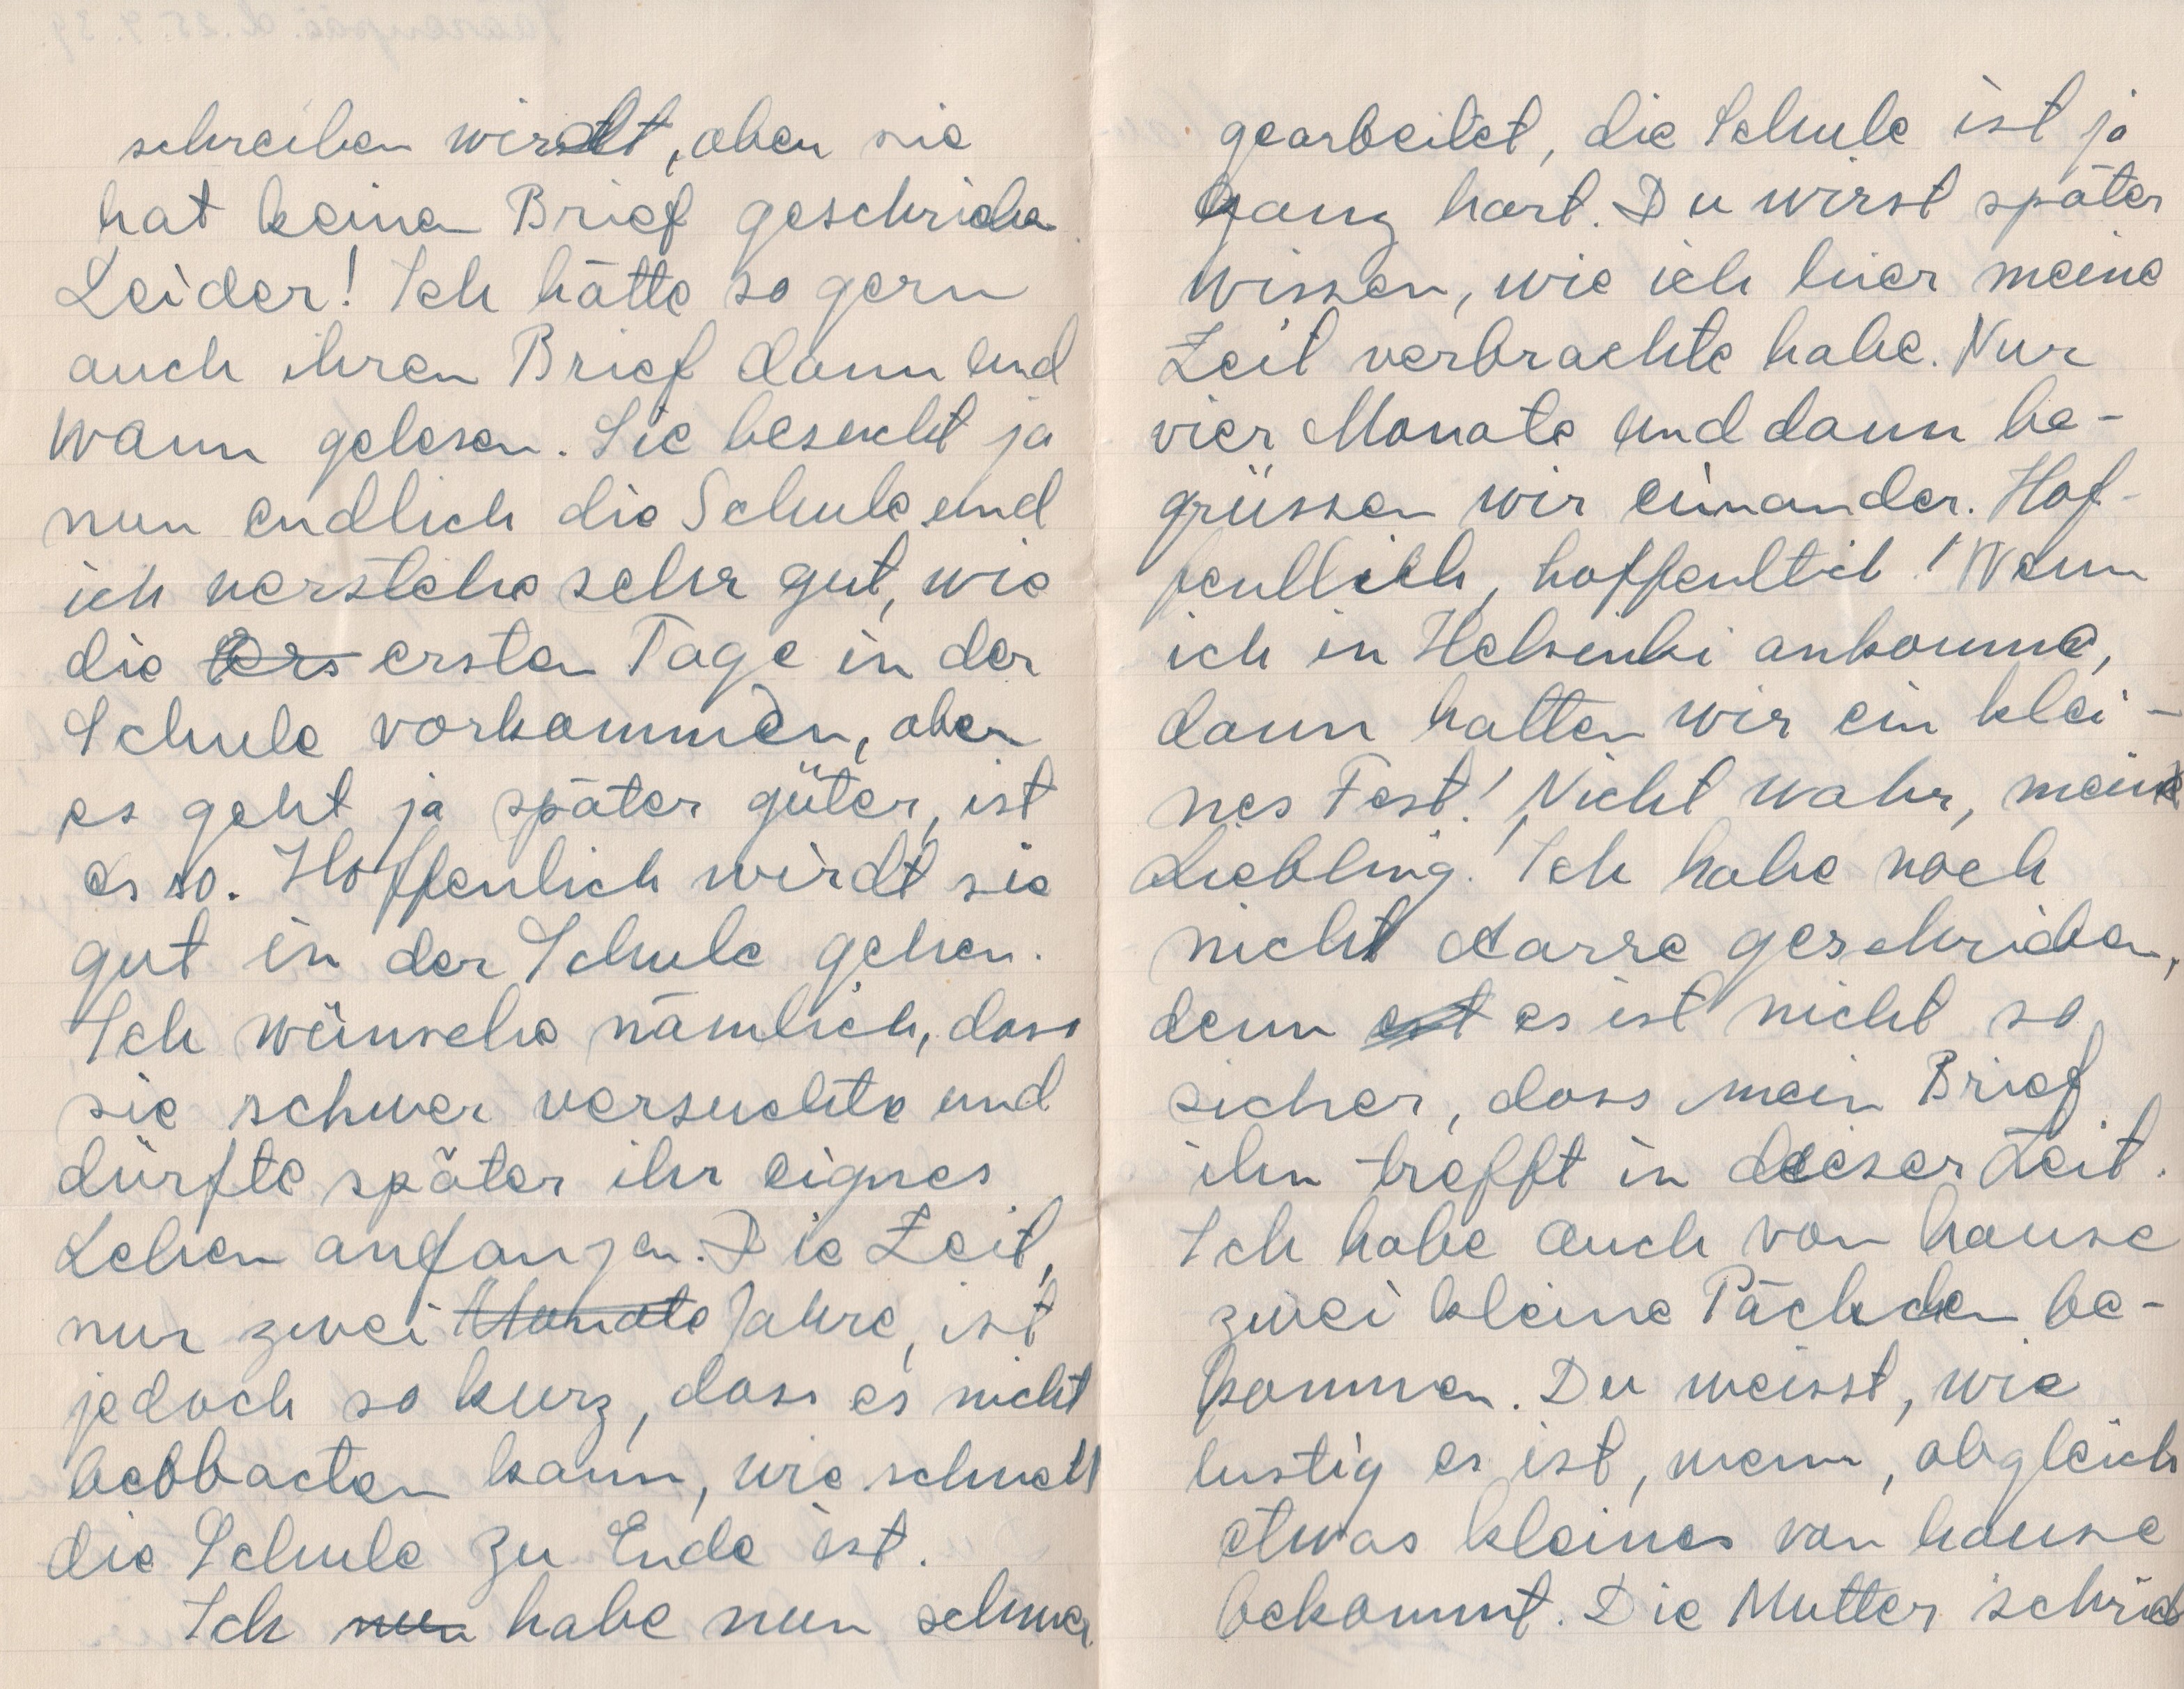 schreiben wirdt, aber sie
hat keinen Brief geschrieben
Leider! Ich hätte so gern
auch ihren Brief dann und
wann gelesen. Sie besucht ja
nun endlich die Schule und
ich verstehe sehr gut, wie
die ers ersten Tage in der
Schule vorkommen, aber
es geht ja später güter, ist
es so. Hoffenlich wirdt sie
gut in der Schule gehen.
Ich wünsche nämlich, dass
sie schwer versuchte und
dürfte später ihr eignes
Leben anfangen. Die Zeit,
nur zwei Monate Jahre, ist
jedoch so kurz, dass es nicht
beobbacten kann, wie schnell
die Schule zu Ende ist.
Ich nun habe nun schwer
gearbeitet, die Schule ist ja
ganz hart. Du wirst später
wissen, wie ich hier meine
Zeit verbrachte habe. Nur
vier Monate und dann be-
grüssen wir einander. Hof-
fentlich, hoffentlich! Wenn
ich in Helsinki ankomme,
dann halten wir ein klei-
nes Fest! Nicht wahr, meine
Liebling! Ich habe noch
nicht Aarre geschrieben,
denn est es ist nicht so
sicher, dass mein Brief
ihn trefft in dieser Zeit.
Ich habe auch von hause
zwei kleine Päckchen be-
kommen. Du weisst, wie
lustig es ist, wenn, obgleich
etwas kleines von hause
bekommt. Die Mutter schrieb